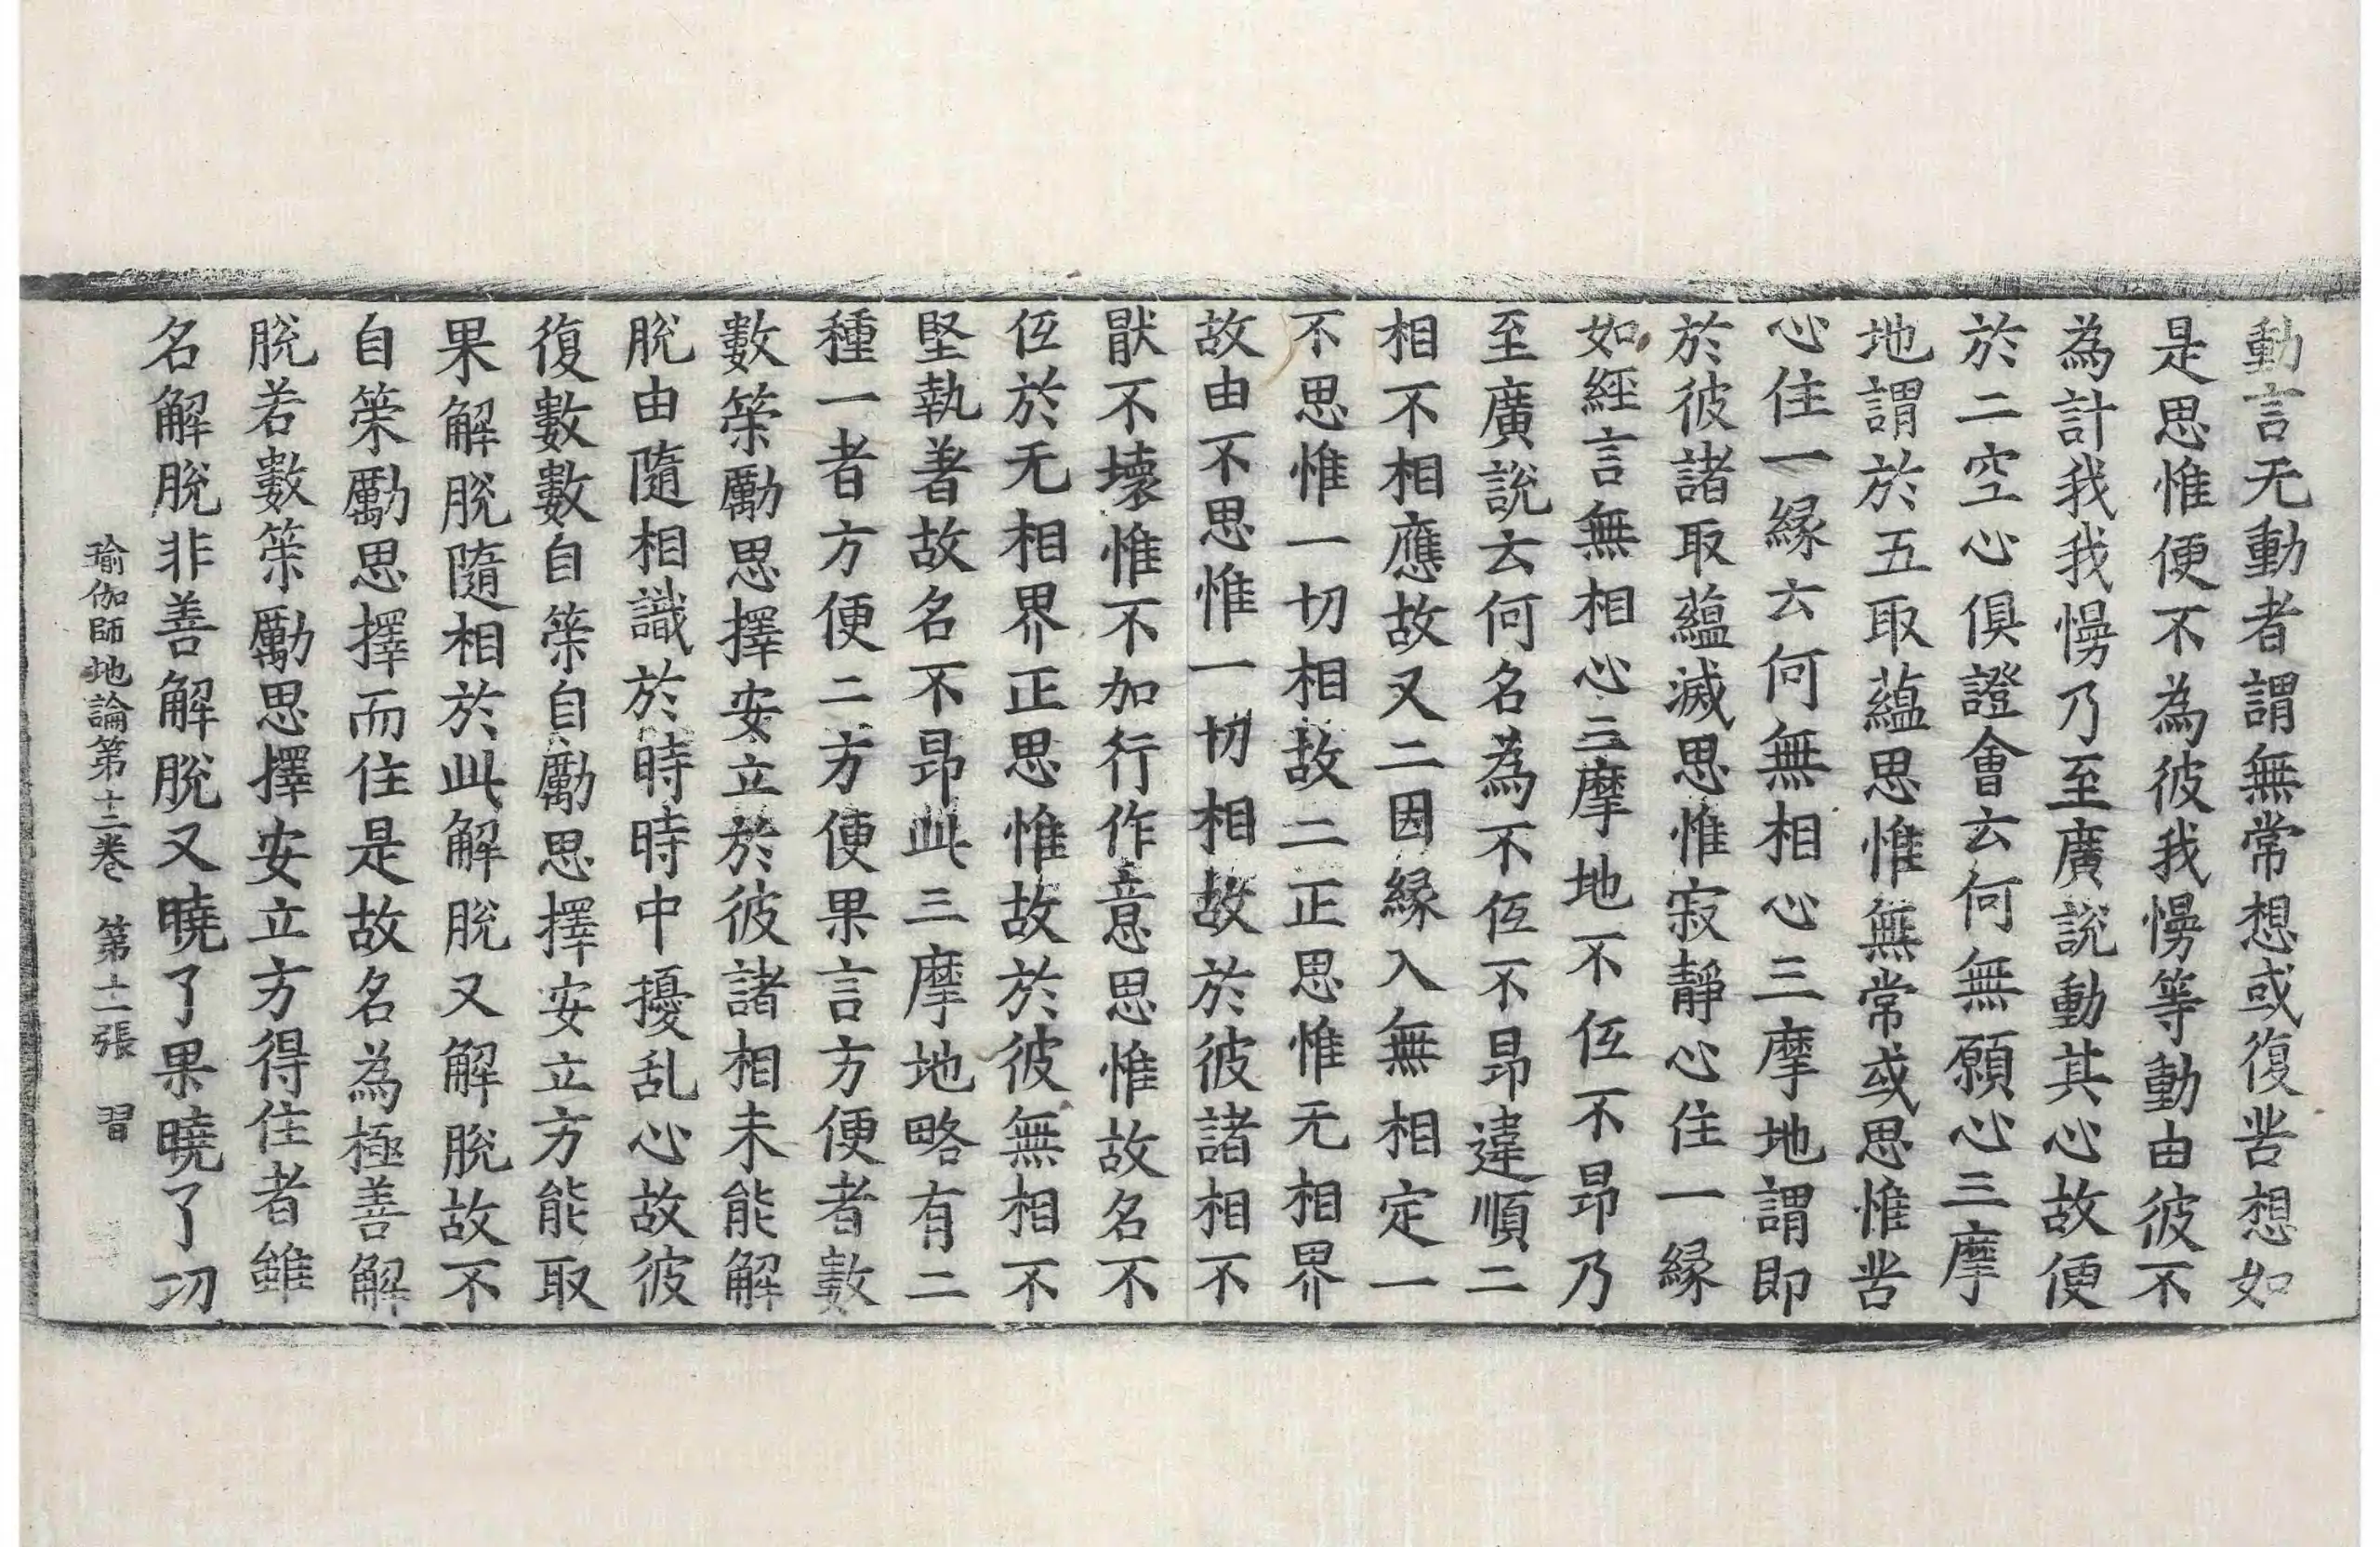 動言无動者謂無常想或復苦想如
是思惟便不為彼我慢等動由彼不
為計我我慢乃至廣說動其心故便
於二空心俱證會云何無願心三摩
地謂於五取蘊思惟無常或思惟苦
心住一緣云何無相心三摩地謂即
於彼諸取蘊滅思惟寂靜心住一緣
如經言無相心三摩地不仾不昂乃
至廣說云何名為不仾不昂違順二
相不相應故又二因緣入無相定一
不思惟一切相故二正思惟无相界
故由不思惟一切相故於彼諸相不
猒不壞惟不加行作意思惟故名不
仾於无相界正思惟故於彼無相不
堅執著故名不昂此三摩地略有二
種一者方便二方便果言方便者數
數策勵思擇安立於彼諸相未能解
脫由隨相識於時時中擾乱心故彼
復數數自策自勵思擇安立方能取
果解脫隨相於此解脫又解脫故不
自策勵思擇而住是故名為極善解
脫若數策勵思擇安立方得住者雖
名解脫非善解脫又曉了果曉了功
瑜伽師地論第十二卷 第十一張 習